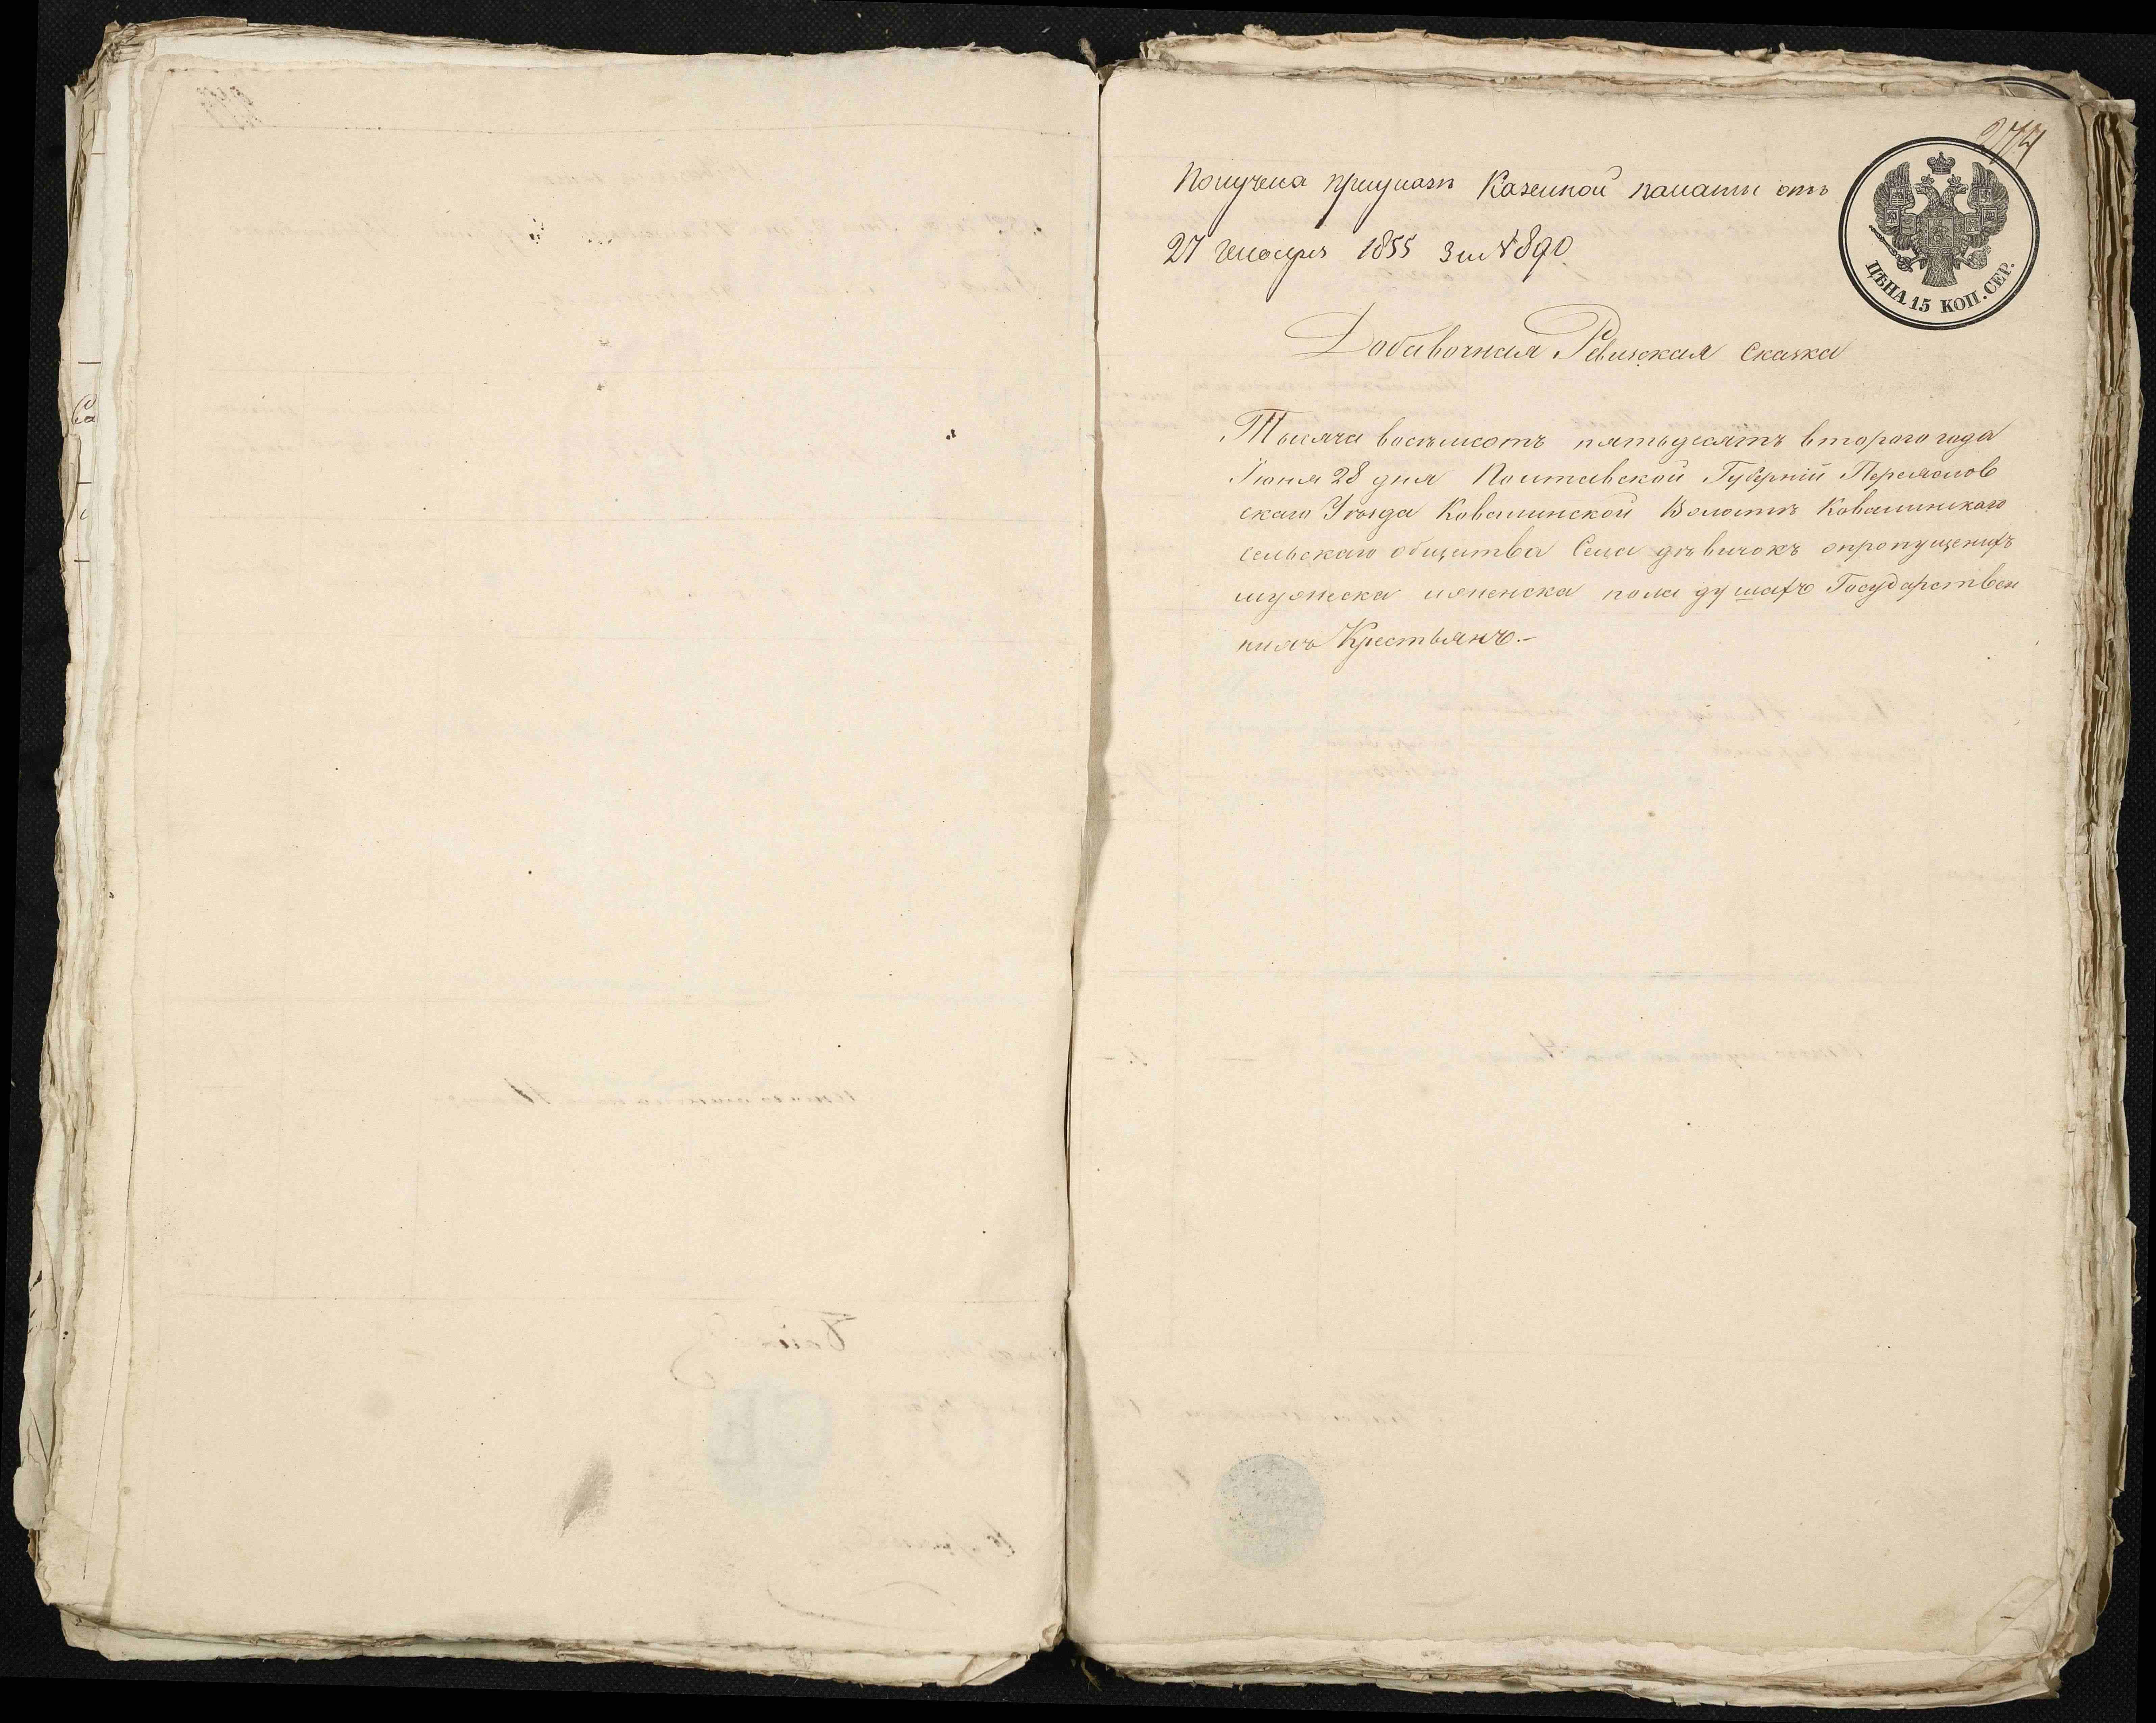 274
Получена приуказѣ Казенной палаты отъ
27 генваря 1855 за № 890
ЦѢНА 15 КОП. СЕР.
Добавочная Ревизская Сказка
Тысяча восемсотъ пятьдесятъ второго года
Іюня 28 дня Полтавской Губерніи Переяслов
скаго Уѣзда Ковалинской Волости Ковалинскаго
сельскаго общества Села дѣвичокъ опропущеныхъ
мужеска иженска пола душахъ Государствен
ныхъ Крестьянъ.-
Са